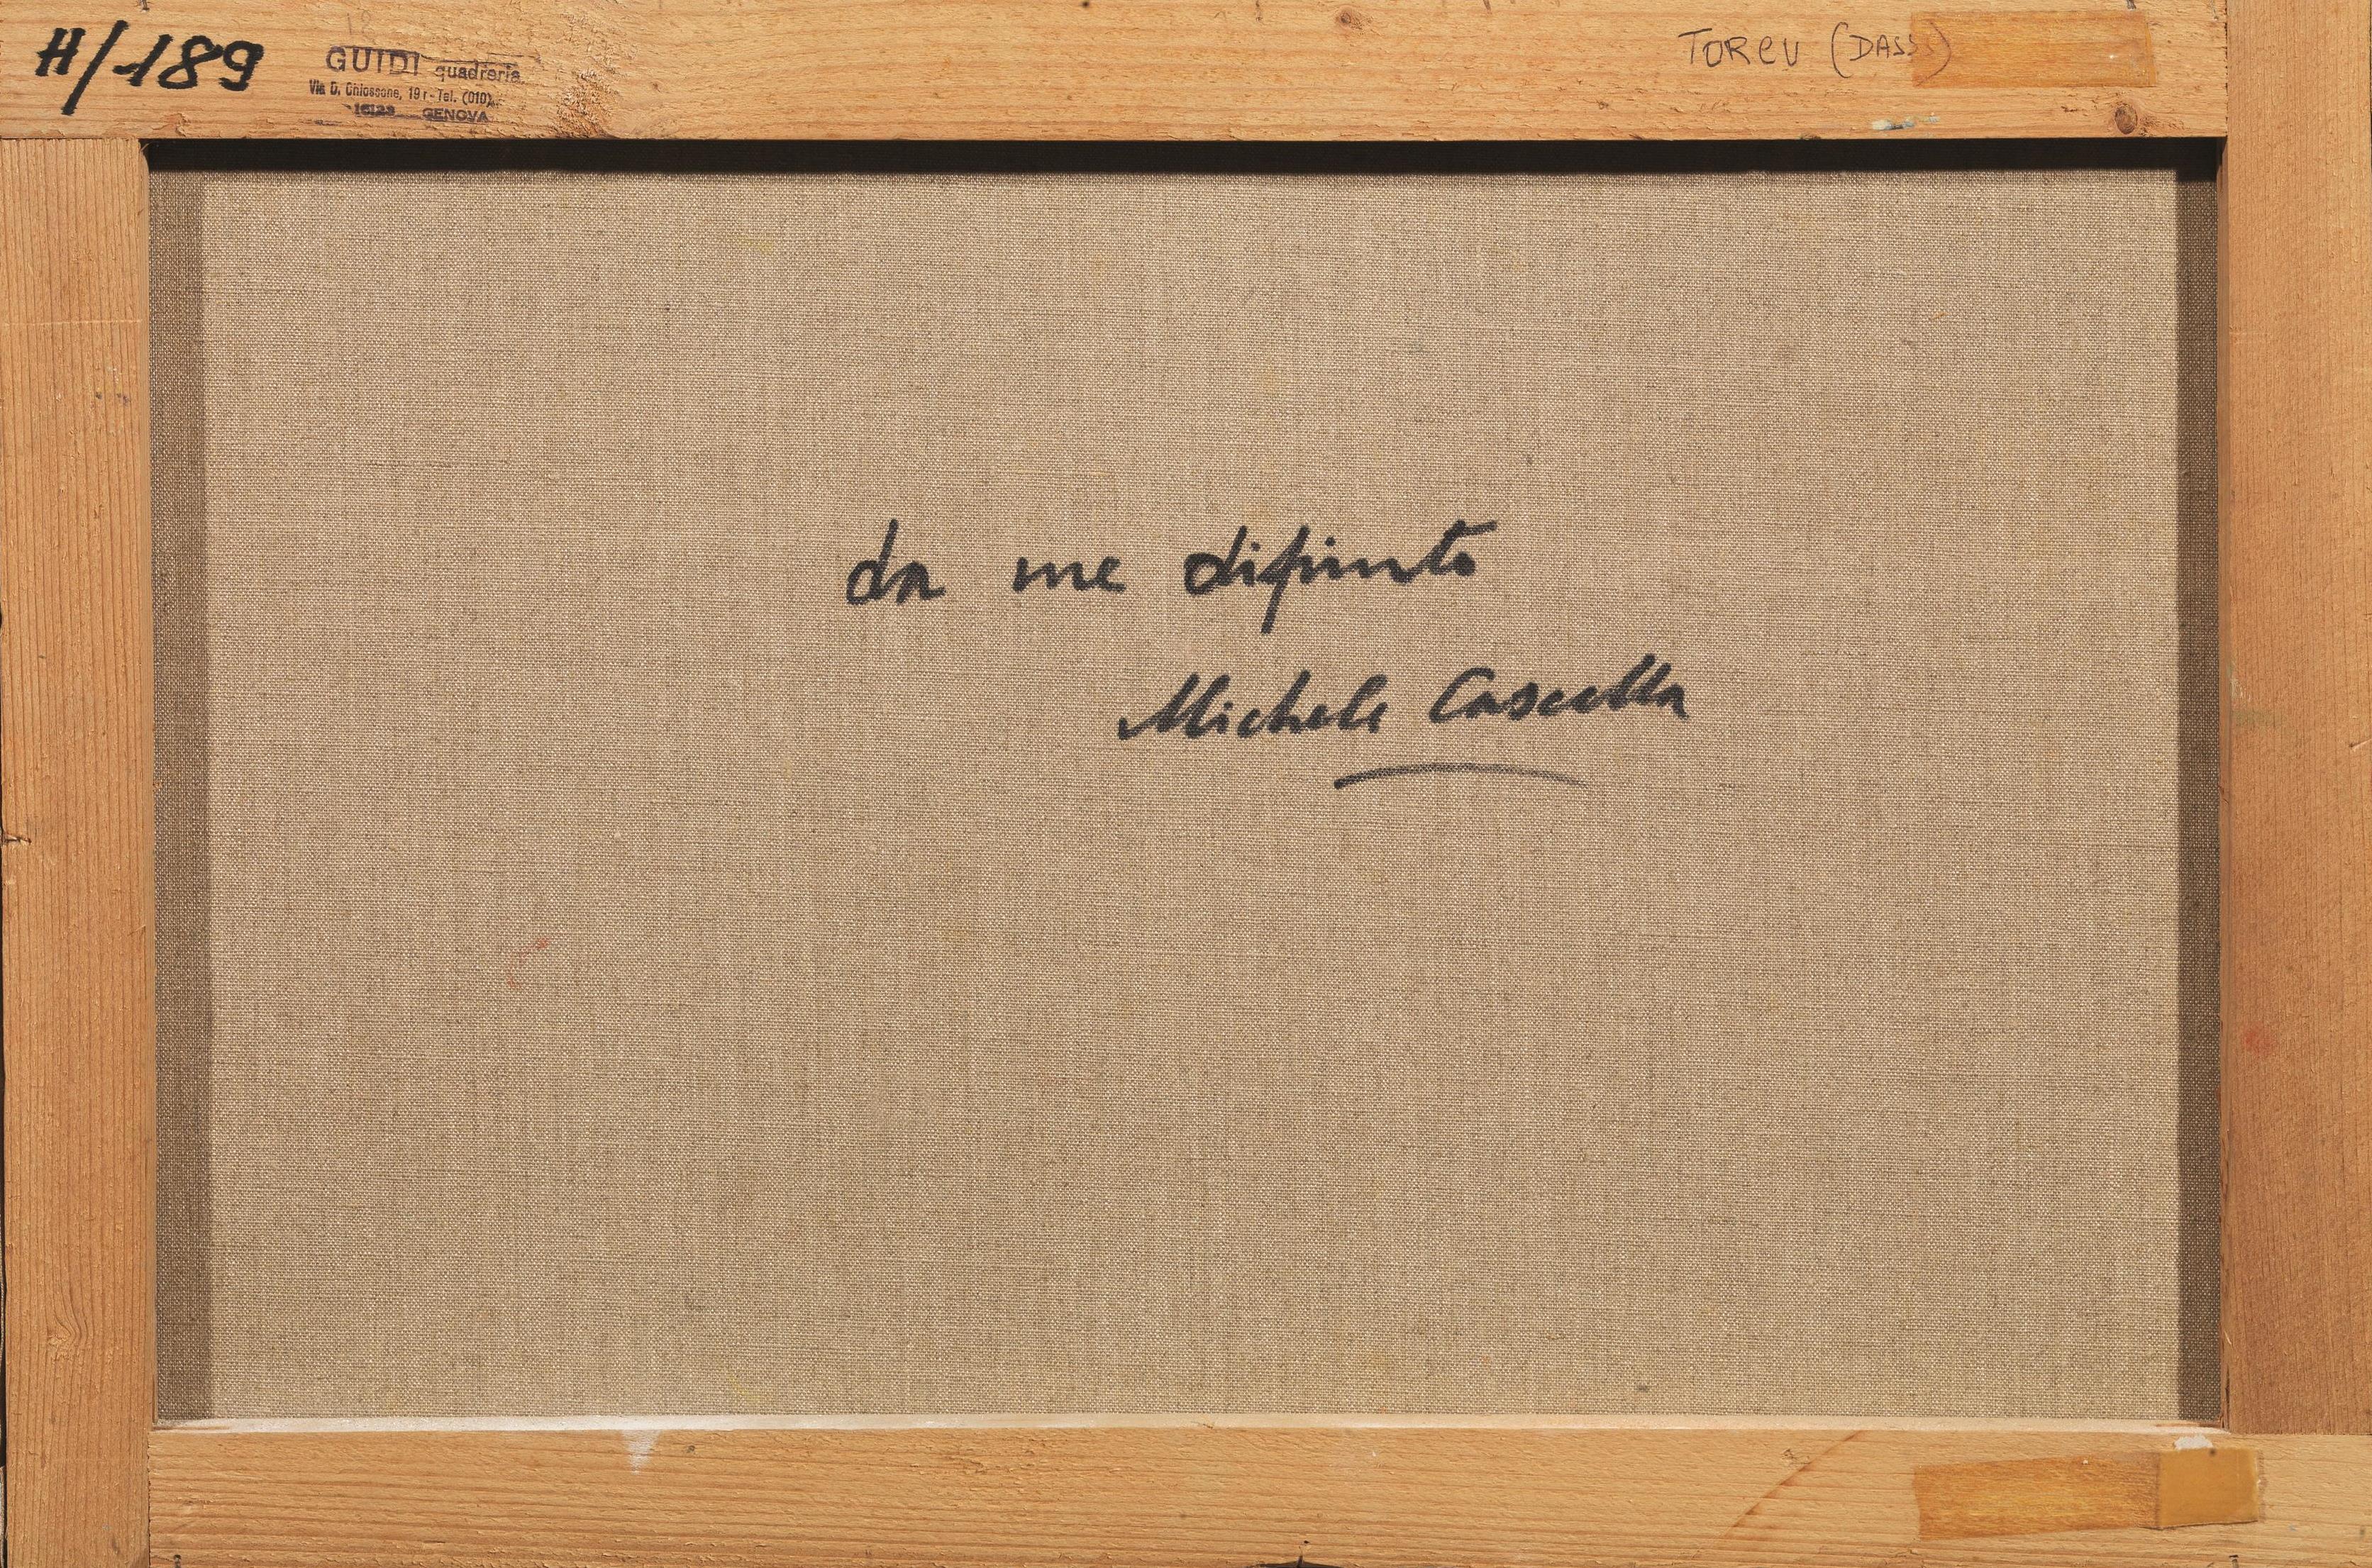 H/189
GUIDI quadreria
Via D. Chiossone, 19 r - Tel. (010)
16123 GENOVA
TOREU (DASS)
da me dipinto
Michele Cascella